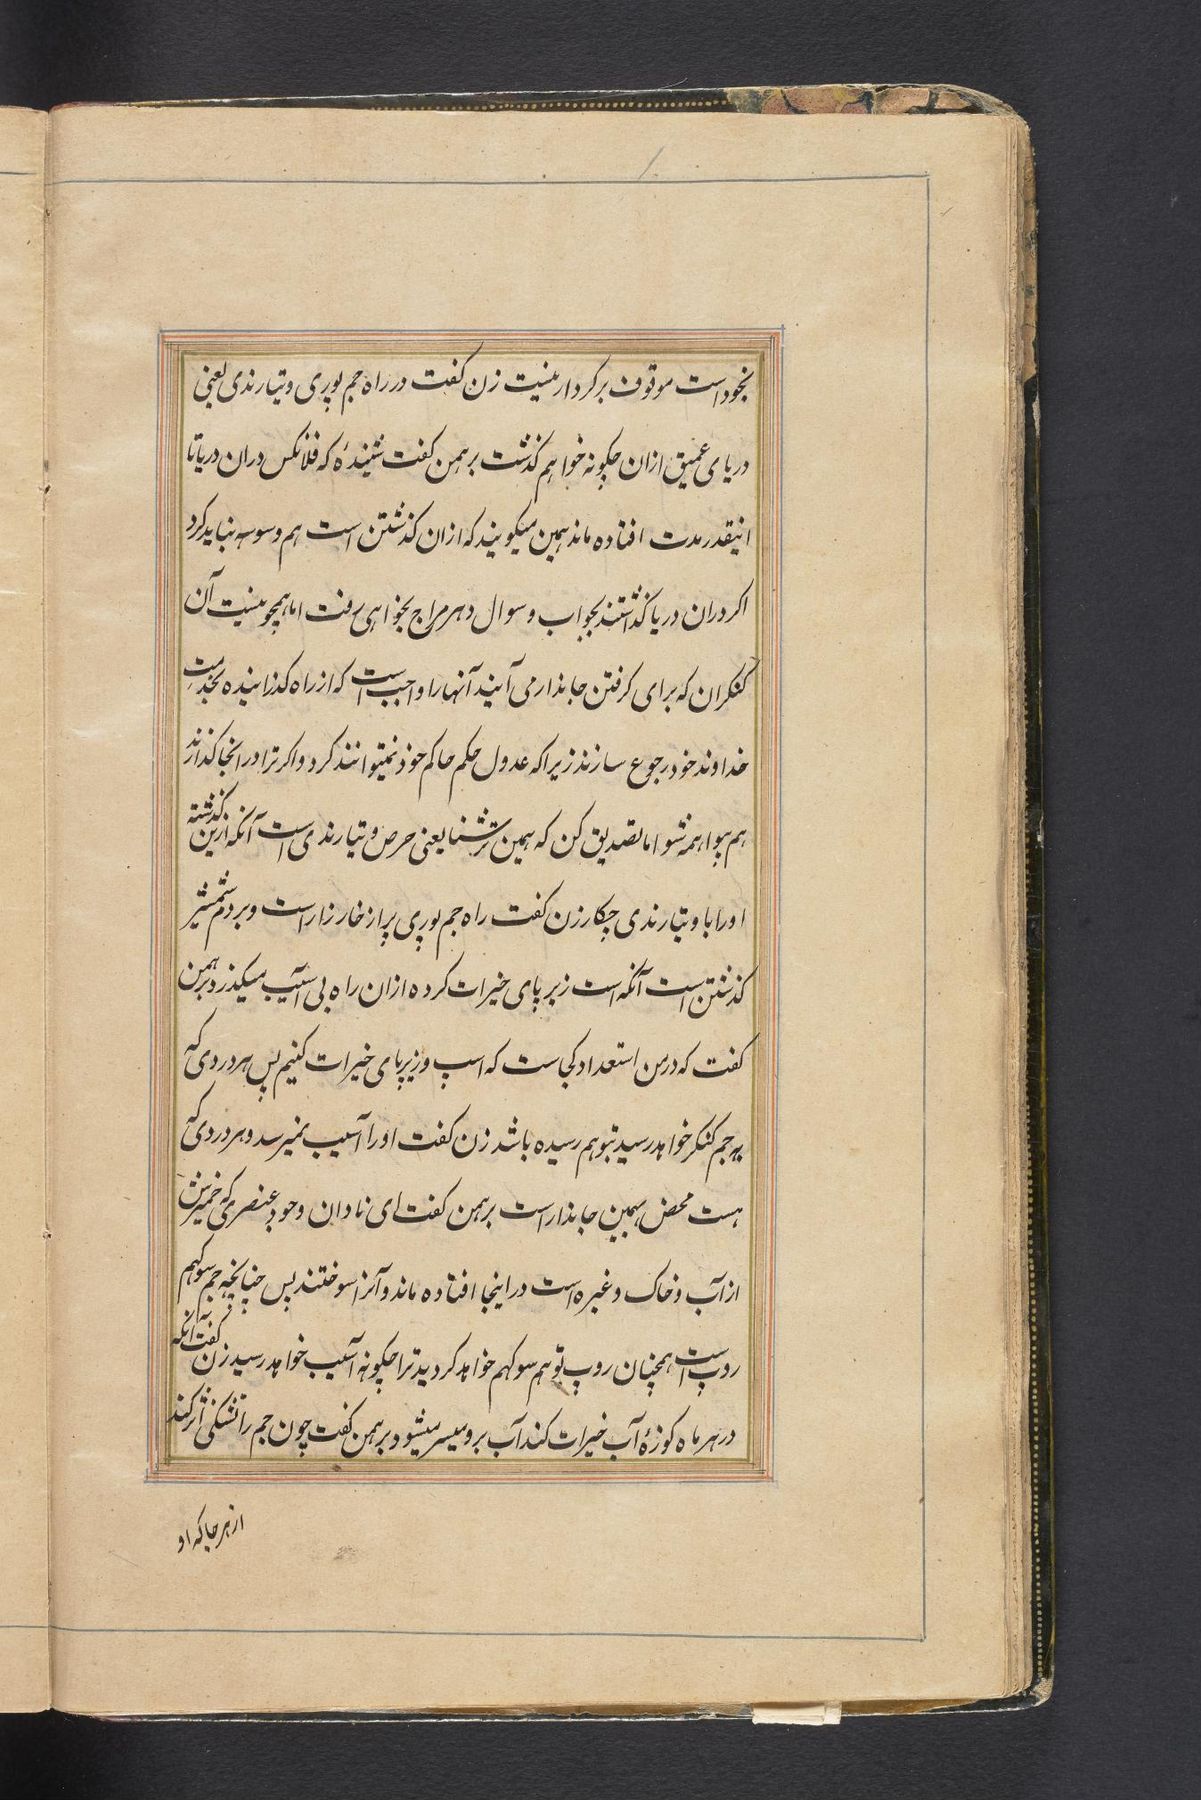 بخود است موقوف بر کردار نیست زن کفت در راه جم پوری و تیارندی یعنی
دریای عمیق ازان چکونه خواهم کذشت برهمن کفت شنیدهٔ که فلانکس دران دریا تا
اینقدر مدت افتاده ماند همین میکویند که ازان کذشتن است هم وسوسه نباید کرد
اکر دران دریا کذاشتند بجواب و سوال دهرمراج بخواهی رفت اما همچو نیست آن
کنکران که برای کرفتن جاندار می آیند آنها را واجب است که از راه کذرانیده بخدمت
خداوند خود رجوع سازند زیرا که عدول حکم حاکم خود نمیتوانند کرد و اکر ترا در انجا کذارند
هم بواهمه مشو اما تصدیق کن که همین ترشنا یعنی حرص و تیارندی است آنکه ازین کذشته
اورا با و تیارندی چکار زن کفت راه جم پوری پر از خارزار است و بر دم شمشیر
کذشتن است آنکه است زیر پای خیرات کرده ازان راه بی آسیب میکذرد برهمن
کفت که درمن استعداد کجاست که اسپ و زیر پای خیرات کنیم پس هر دردی که
به جم کنکر خواهد رسید بتو هم رسیده باشد زن کفت اورا آسیب نمیرسد و هر دردی که
هست محض بهمین جاندار است برهمن کفت ای نادان وجود عنصری که خمیرش
از آب و خاک و غیره است در اینجا افتاده ماند و آنرا سوختند پس چنانچه جم سوکهم
روپ است همچنان روپ تو هم سوکهم خواهد کردید ترا چکونه آسیب خواهد رسید زن کفت آنکه
در هر ماه کوزهٔ آب خیرات کند آب برو میسر میشود برهمن کفت چون جم را تشنکی اثر کند
از هر جا که او